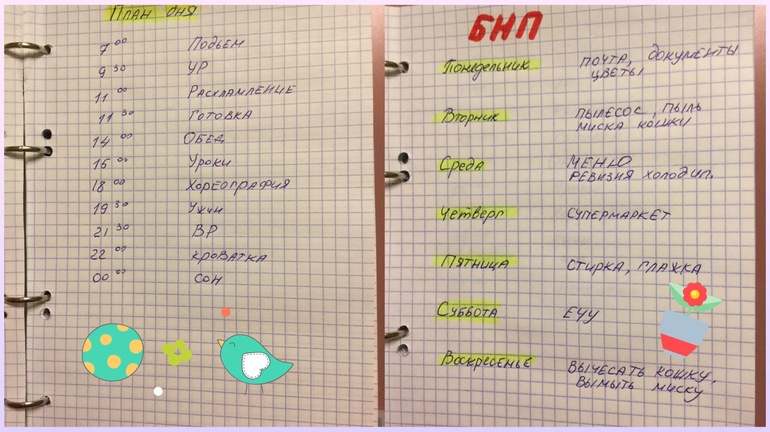 План дня
7 00 Подъем
9 30 УР
11 00 Расхламление
11 30 Готовка
14 00 Обед
15 00 Уроки
18 00 Хореография
19 30 Ужин
21 30 ВР
22 00 Кроватка
00 00 Сон
БНП
Понедельник почта, документы
цветы
Вторник пылесос, пыль
миска кошки
Среда меню
ревизия холодил.
Четверг супермаркет
Пятница стирка, глажка
Суббота ЕЧУ
Воскресенье вычесать кошку,
вымыть миску